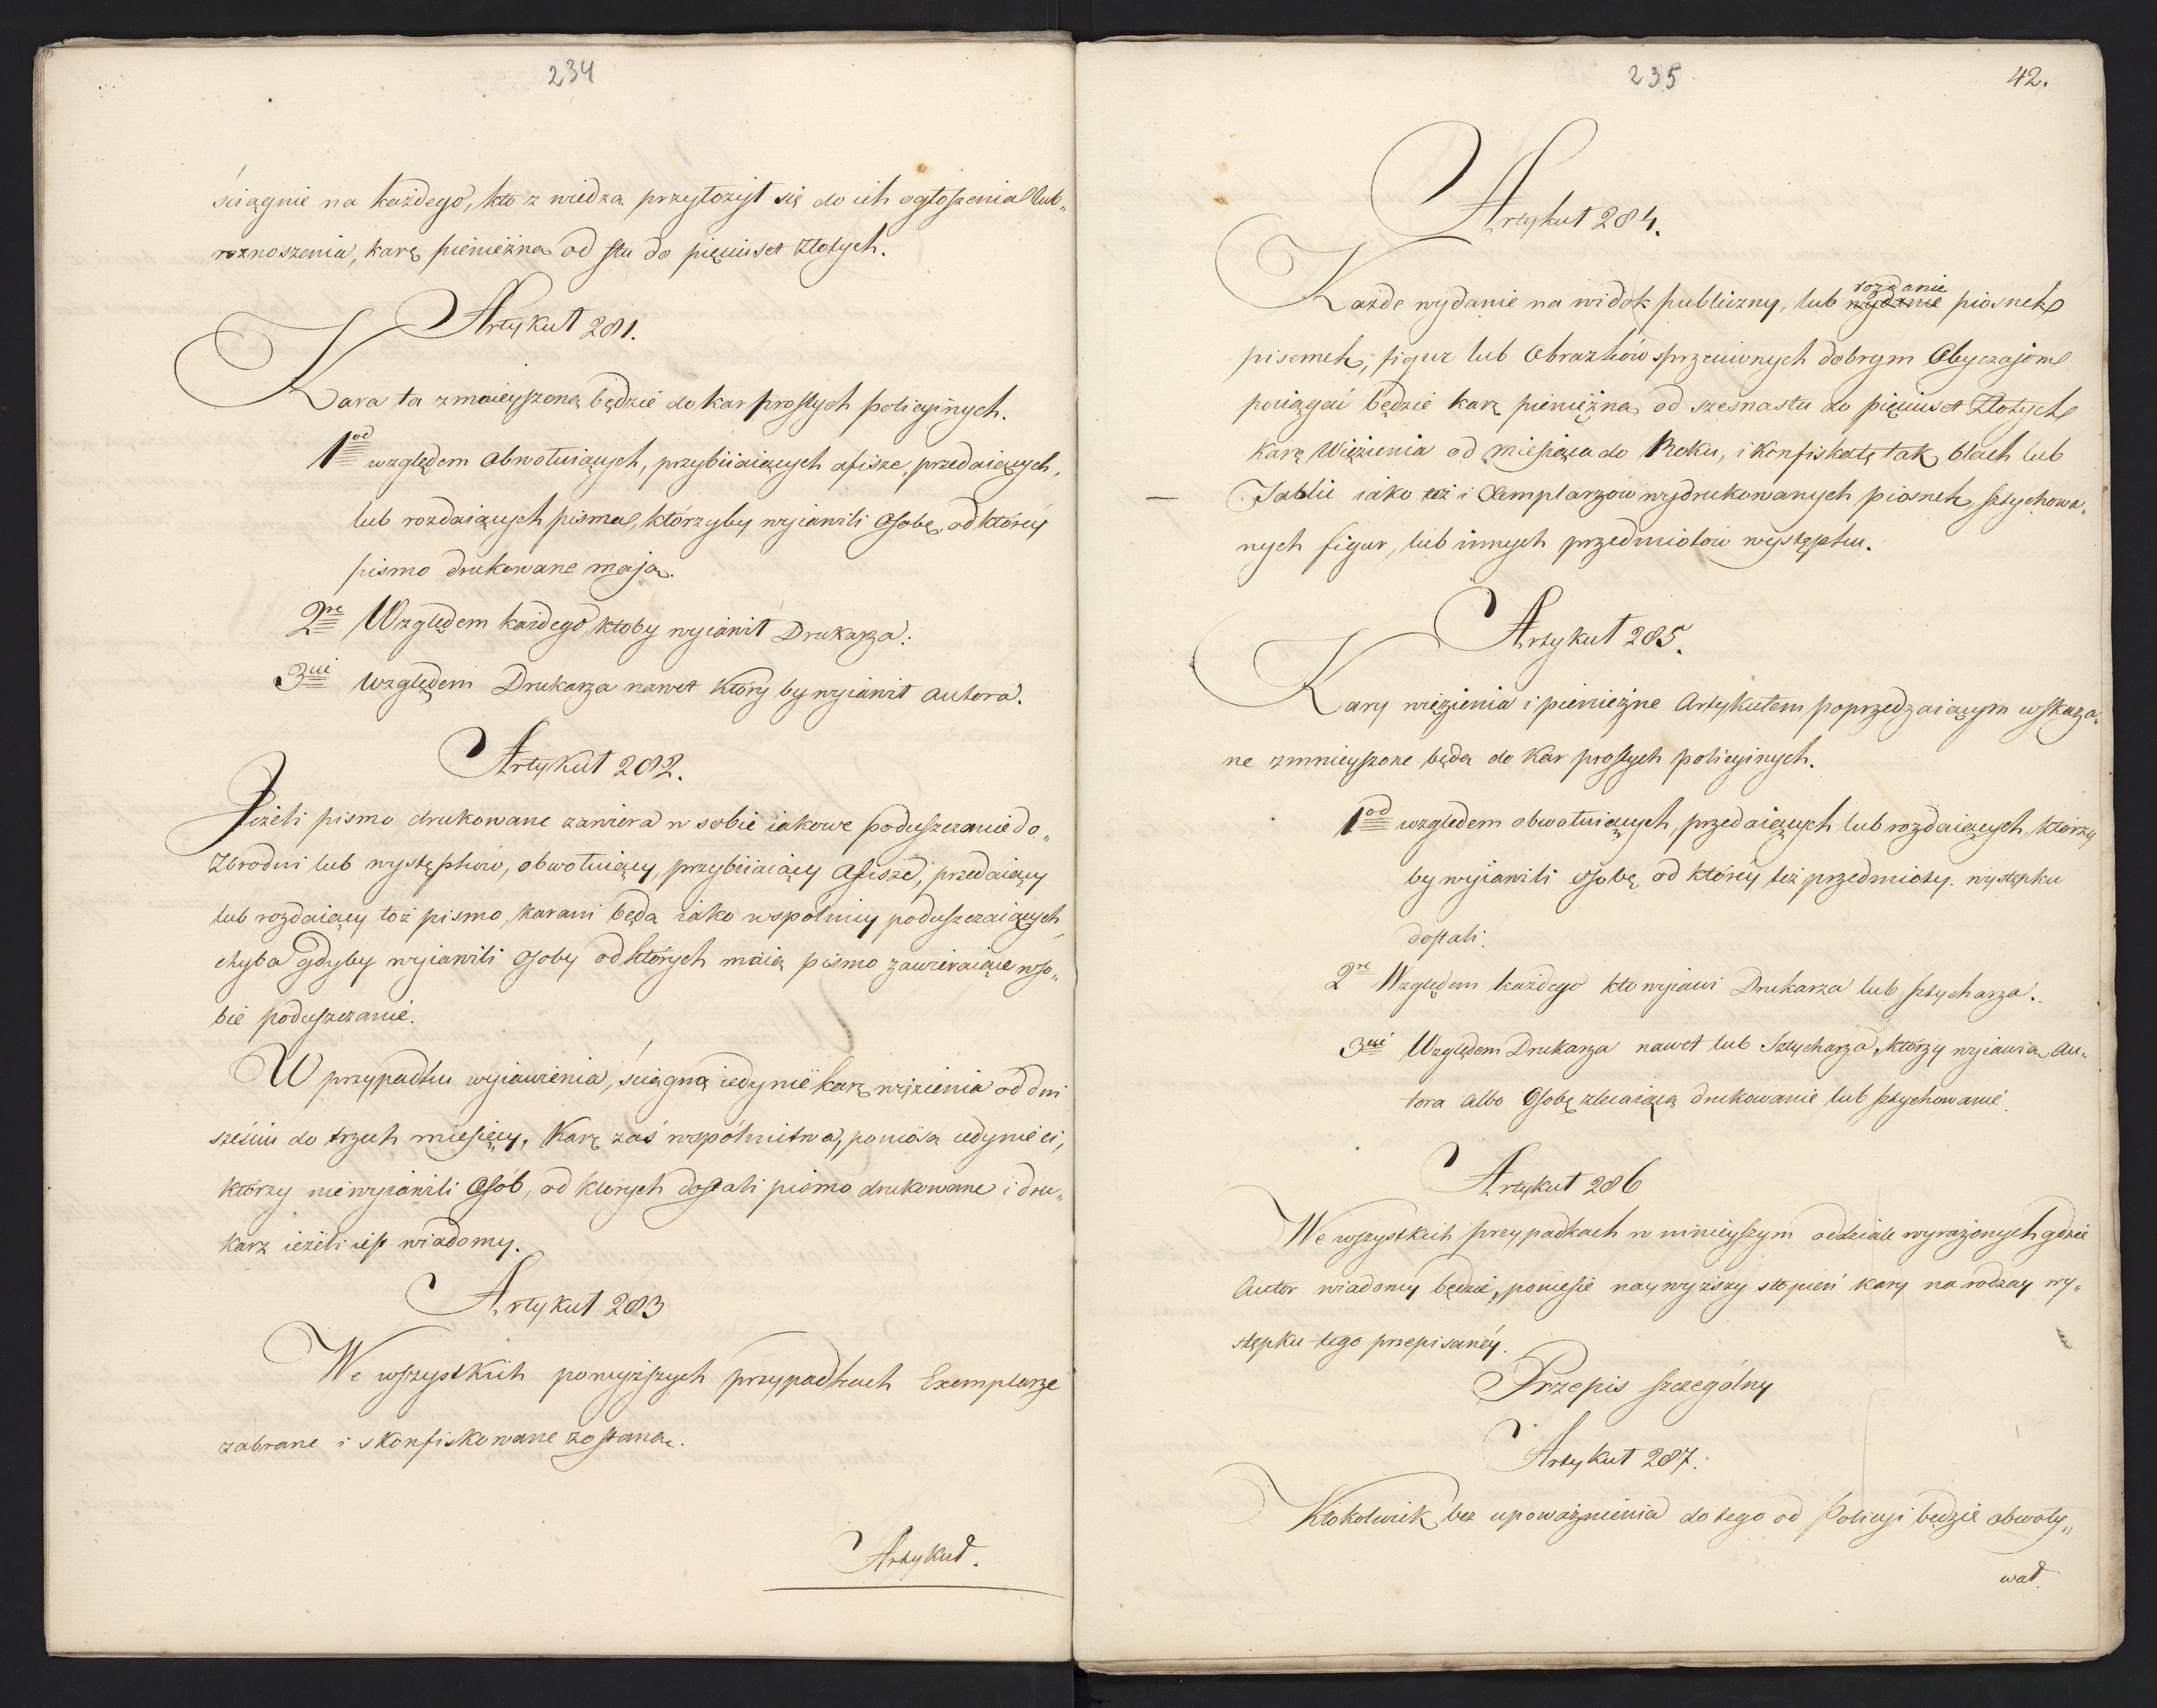 234
ściągnie na każdego, kto z wiedzą przyłożył się do ich ogłoszenia lub„
roznoszenia, karę pieniężną od stu do pięciuset złotych.
Artykuł 281.
Kara ta zmnieyszoną będzie do kar prostych policyinych.
1od względem obwołuiących, przybiiaiących afisze, przedaiących,
lub rozdaiących pisma, którzyby wyiawili Osobę, od któréy
pismo drukowane mają.
2re Względem każdego ktoby wyiawił Drukarza.
3cie względem Drukarza nawet który by wyiawił autora.
Artykuł 282.
Jeżeli pismo drukowane zawiera w sobie iakowe poduszczanie do„
Zbrodni lub występków, obwołuiący, przybiiaiący Afisze, przedaiący
lub rozdaiący toż pismo, karani będą iako wspólnicy poduszczaiących,
chyba gdyby wyiawili osoby od których maią pismo zawieraiące w so„
bie poduszczanie.
W przypadku wyiawienia, ściągną iedynie karę więzienia od dni
sześciu do trzech miesięcy. Karę zaś wspólnictwa, poniosą iedynie ci,
którzy nie wyiawili Osób, od których dostali pismo drukowane i dru„
karz ieżeli iest wiadomy.
Artykuł 283
We wszystkich powyższych przypadkach Exemplarze
zabrane i skonfiskowane zostaną.
Artykuł.
235
42.
Artykuł 284.
Każde wydanie na widok publiczny, lub wydanie rozdanie piosnek
pisemek, figur lub Obrazków sprzeciwnych dobrym Obyczajom
pociągać będzie karę pieniężną od szesnastu do pięciuset Złotych
karę Więzienia od miesiąca do Roku, i konfiskatę tak blach lub
Tablic iako też i Exemplarzów wydrukowanych piosnek, sztychowa„
nych figur, lub innych przedmiotów występku.
Artykuł 285.
Kary więzienia i pieniężne Artykułem poprzedzaiącym wskaza„
ne zmnieyszone będą do kar prostych policyinych.
1od względem obwołuiących, przedaiących lub rozdaiących, którzy
by wyiawili osobę od któréy też przedmioty występku
dostali.
2re Względem każdego kto wyiawi Drukarza lub sztycharza.
3cie Względem Drukarza nawet lub Sztycharza, którzy wyiawią Au„
tora albo Osobę zlecaiącą drukowanie lub sztychowanie.
Artykuł 286
We wszystkich przypadkach w ninieyszym oddziale wyrażonych gdzie
Autor wiadomy będzie, poniesie naywyższy stopień kary na rodzay wy„
stępku tego przepisanéy.
Przepis szczególny
Artykuł 287.
Ktokolwiek bez upoważnienia do tego od Policyi będzie obwoły„
wał.